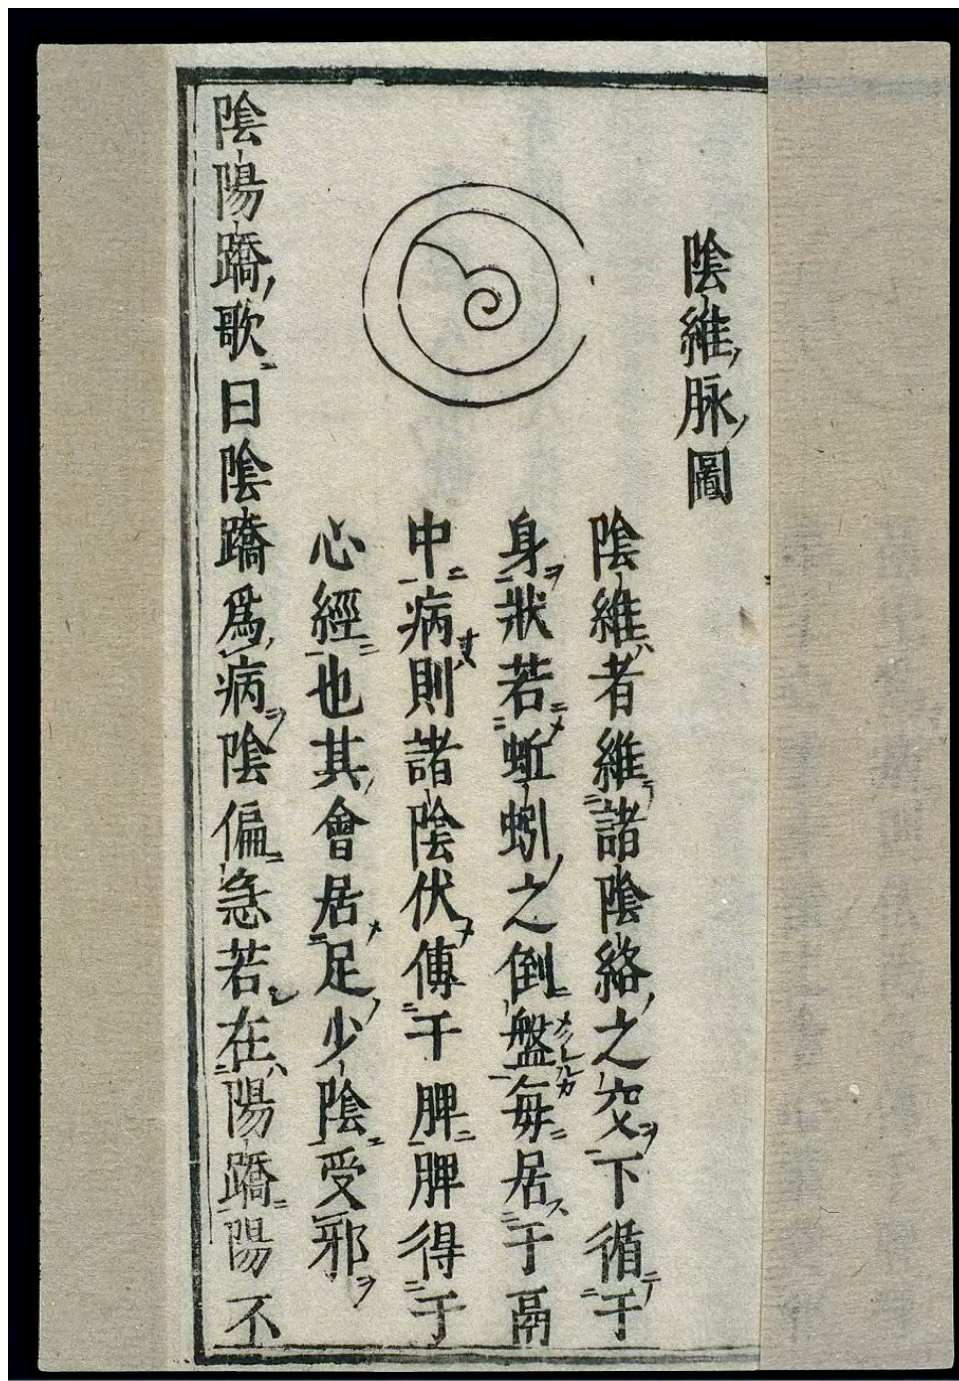 陰維脉圖
陰維者維諸陰絡之交下循于
身狀若蚯蚓之倒盤每居于鬲
中病則諸陰伏傳于脾脾得于
心經也其會居足少陰受邪
陰陽蹻歌曰陰蹻爲病陰偏急若在陽蹻陽不